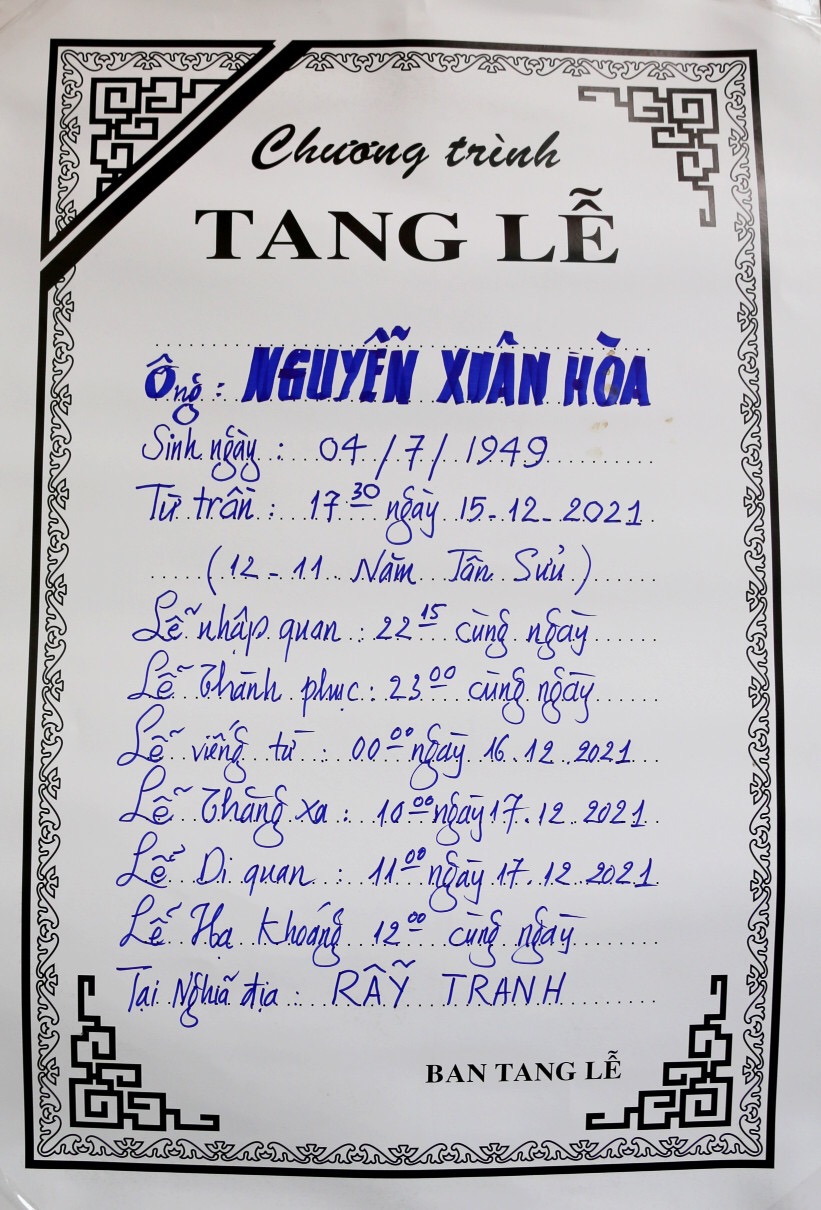 Chương trình
TANG LỄ
Ông : NGUYỄN XUÂN HÒA
Sinh ngày : 04/7/1949
Từ trần : 17 30 ngày 15-12-2021
(12-11 Năm Tân Sửu)
Lễ nhập quan : 22 15 cùng ngày
Lễ Thành phục : 23 00 cùng ngày
Lễ viếng từ : 00 00 ngày 16.12.2021
Lễ Thăng xa : 10 00 ngày 17.12.2021
Lễ Di quan : 11 00 ngày 17.12.2021
Lễ Hạ khoáng 12 00 cùng ngày
Tại Nghĩa địa : RẪY TRANH
BAN TANG LỄ